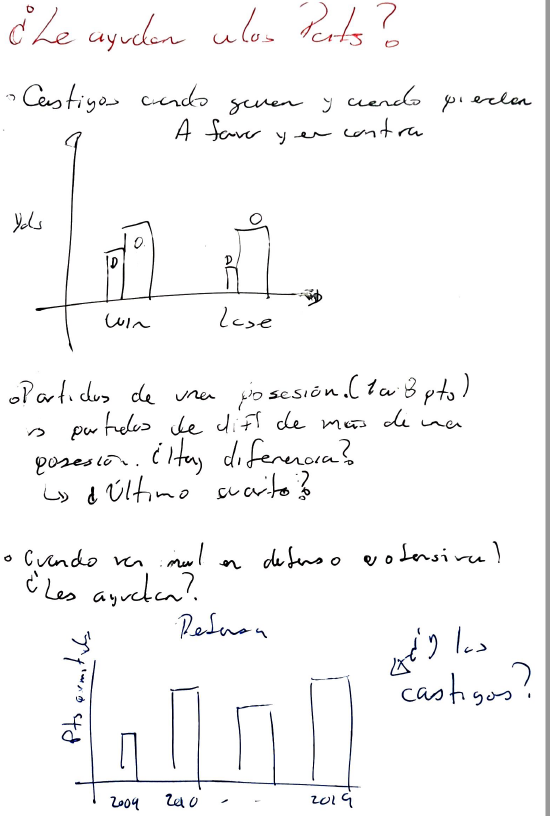 ¿Le ayudan a los Pats?
◦ Castigos cuando ganen y cuando pierden
A favor y en contra
Yds
D
O
D
O
Win
Lose
◦ Partidos de una posesión. (1 a 8 pts)
↳ partidos de diff de más de una
posesión. ¿Hay diferencia?
↳ ¿Último cuarto?
◦ Cuando van mal en defensa u ofensiva
¿Les ayudan?
Defensa
Pts
¿Y los
castigos?
2009 2010 - - 2019